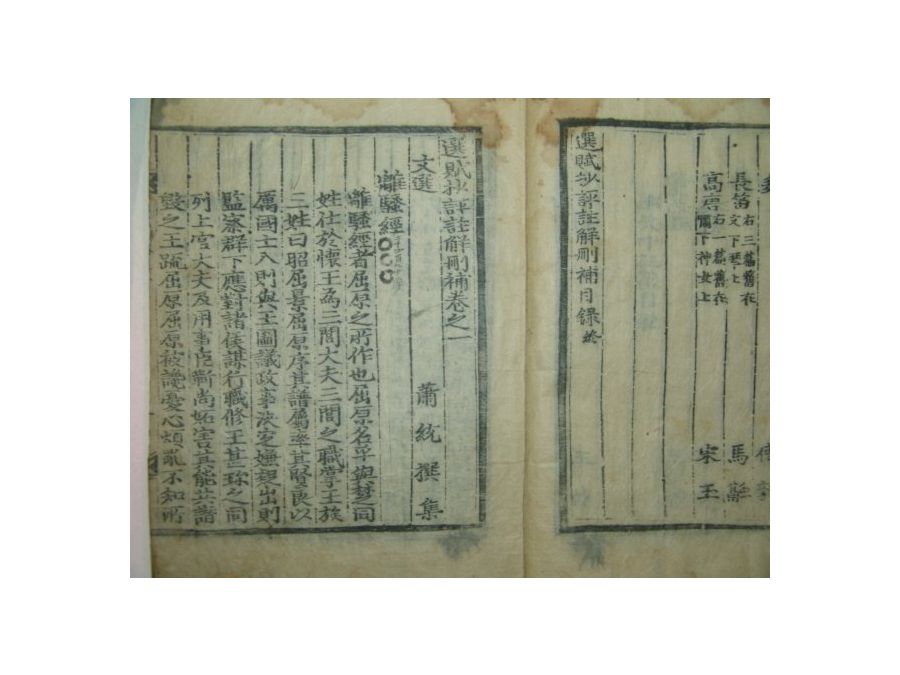 長笛 右三篇舊在文下琴上 馬融
高唐 右一篇舊在彌下神女上 宋玉
選賦抄評註解刪補目錄 終
選賦抄評註解刪補卷之一
文選 蕭統撰集
離騷經
離騷經者屈原之所作也屈原名平與楚之同
姓仕於懷王為三閭大夫三閭之職掌王族
三姓曰昭屈景屈原序其譜屬率其賢良以
厲國士入則與王圖議政事決定嫌疑出則
監察群下應對諸侯謀行職修王甚珍之同
列上官大夫及用事臣靳尚妬害其能共譖
毀之王疏屈原屈原被讒憂心煩亂不知所